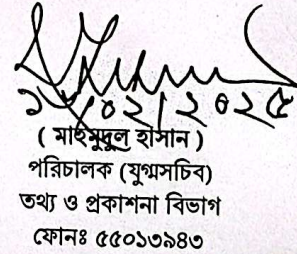 ০২/২০২৫
( মাহমুদুল হাসান )
পরিচালক (যুগ্মসচিব)
তথ্য ও প্রকাশনা বিভাগ
ফোনঃ ৫৫০১৩৯৪৩